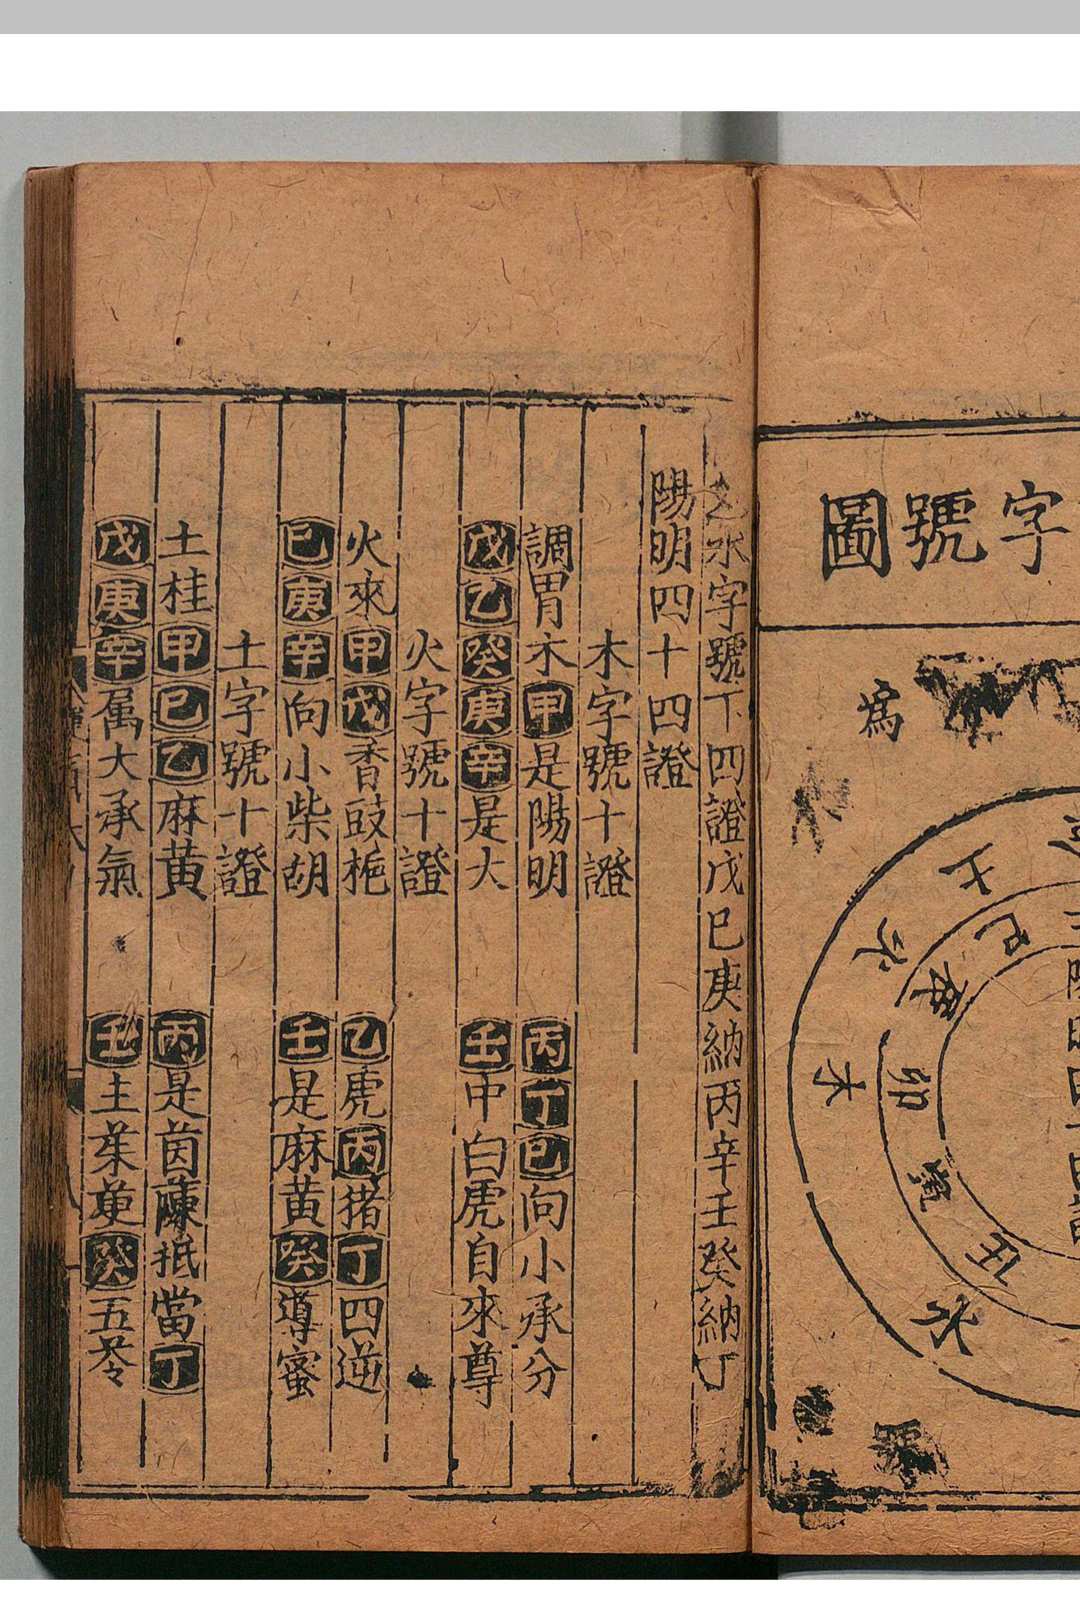 字號圖
為
之水字號下四證戊巳庚納丙辛壬癸納丁
陽明四十四證
木字號十證
調胃木甲是陽明 丙丁巳向小承分
戊乙癸庚辛是大 壬中白虎自來尊
火字號十證
火來甲戊香豉梔 乙虎丙猪丁四逆
巳庚辛向小柴胡 壬是麻黃癸導蜜
土字號十證
土桂甲巳乙麻黃 丙是茵蔯抵當丁
戊庚辛属大承氣 壬主茱萸癸五苓
水
木
丑
卯
巳